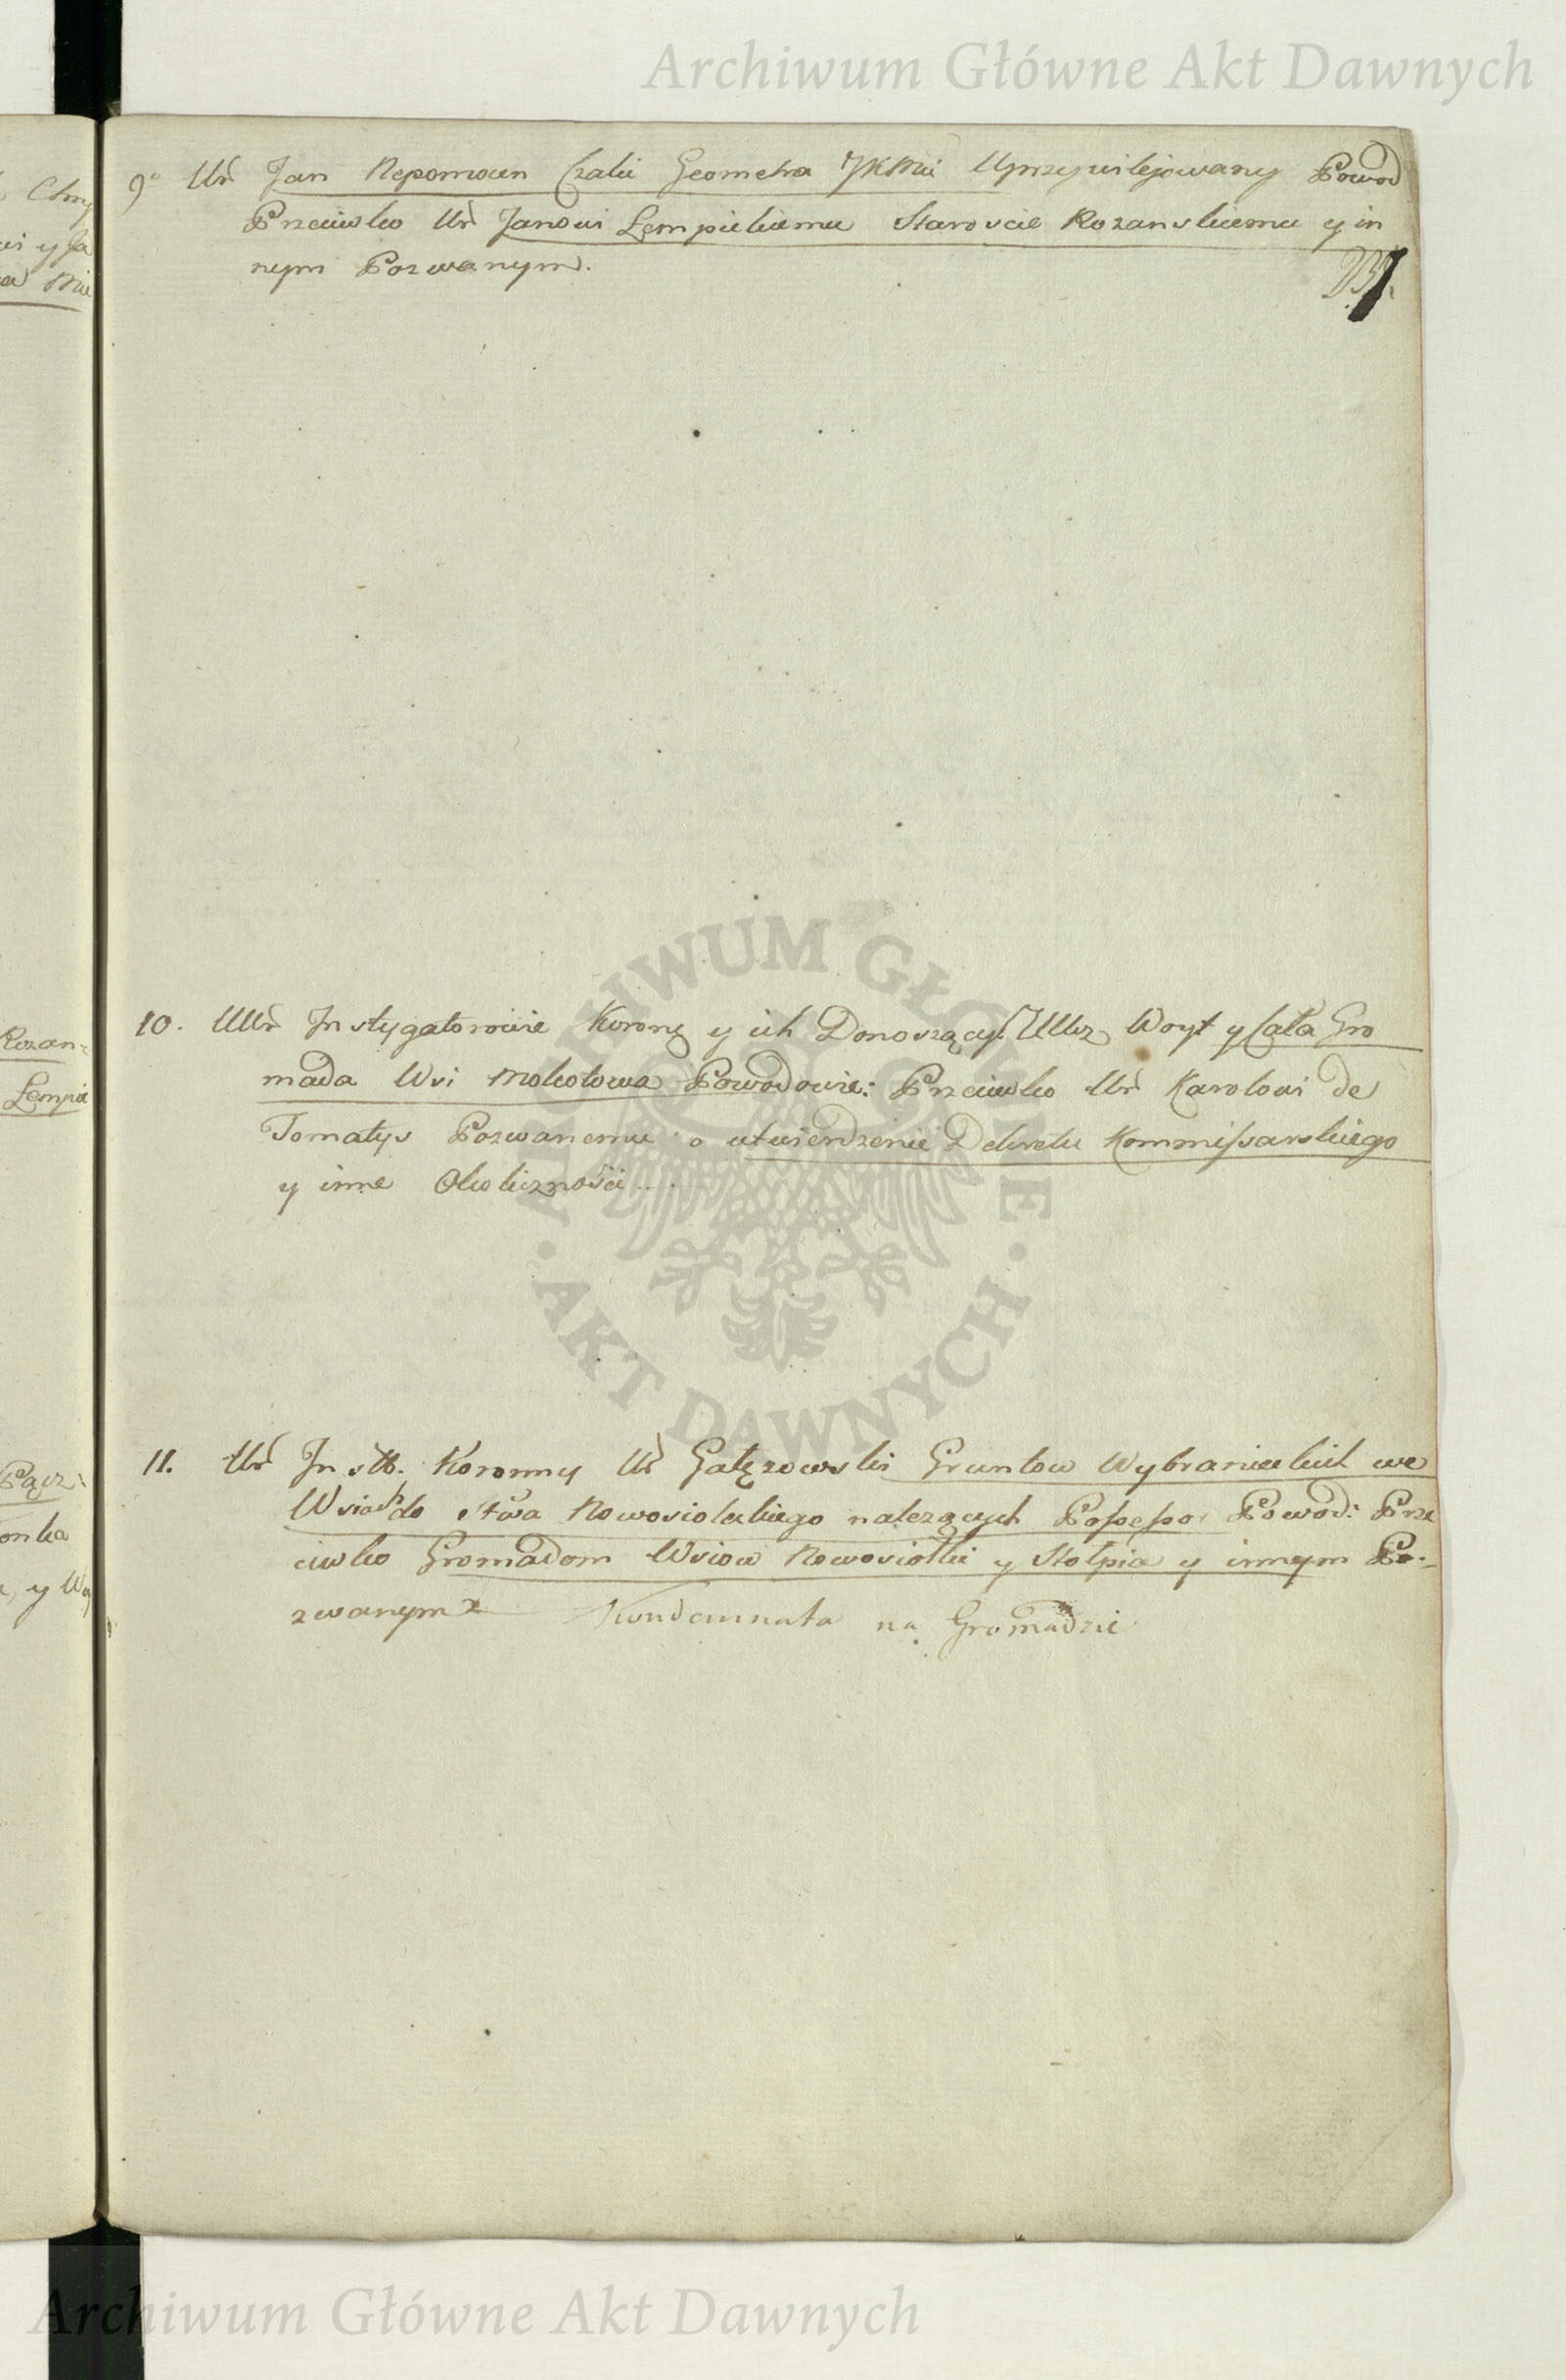 Archiwum Główne Akt Dawnych
9° Ur Jan Nepomucen Czaki Geometra JKMci Uprzywilejowany Powod
Przeciwko Ur Janowi Łempickiemu Staroscie Rozanskiemu y in
nym Pozwanym.
10. UUr Instygatorowie Korony y ich Donoszący. Woyt y Cała Gro
mada Wsi Mokotowa Powodowie: Przeciwko Ur Karolowi de
Tomatys Pozwanemu o utwierdzenie Dekretu Kommissarskiego
y inne Okoliczności
11. Ur Inst. Koronny Ur Gałęzowski Gruntow Wybranieckich we
Wsiach do Stwa Nowosioleckiego należących Possessor Powod: Prze
ciwko Gromadom Wsiow Nowosiołki y Stołpia y innym Po-
zwanym Kondemnata na Gromadzie
ARCHIWUM GŁÓWNE · AKT DAWNYCH ·
Chmy
wi y Ja
Mie
Rozan=
Łempic
Pącz:
onka
y Wo
Archiwum Główne Akt Dawnych